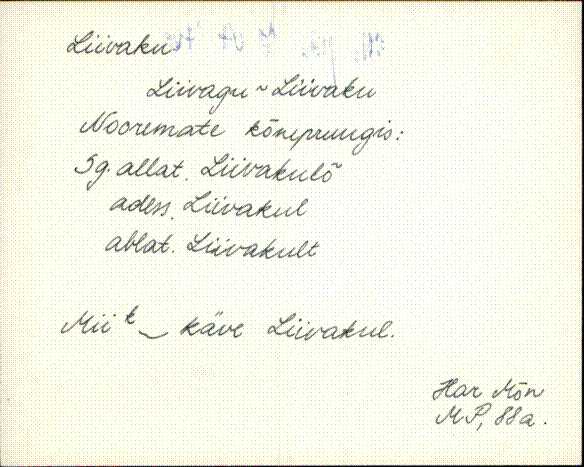 Liivaku
Liivagu ~ Liivaku
Nooremate kõnepruugis:
Sg. allat. Liivakulõ
adess. Liivakul
ablat. Liivakult
Mii k‿käve Liivakul.
Har Mõn
MP, 88a.